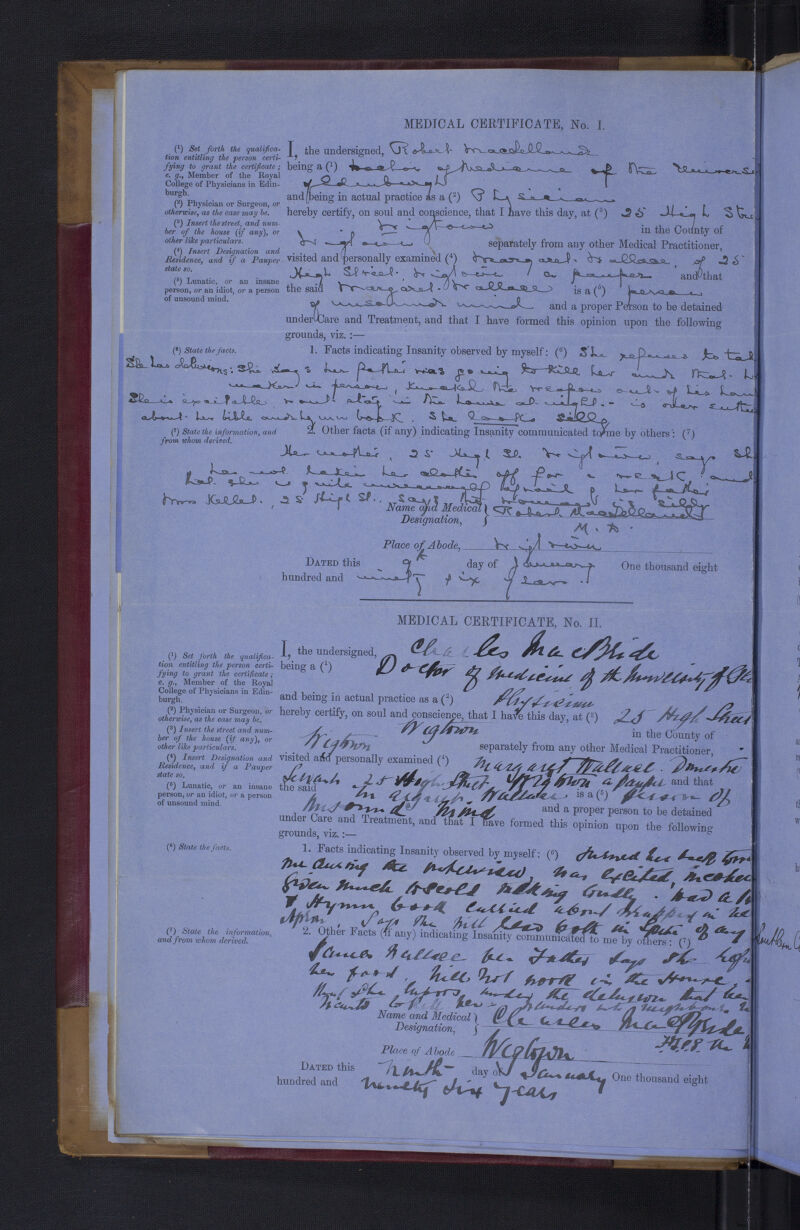 MEDICAL CERTIFICATE, No. I.
(1) Set forth the qualifica-
tion entitling the person certi-
fying to grant the certificate;
e. g., Member of the Royal
College of Physicians in Edin-
burgh.
(2) Physician or Surgeon, or
otherwise, as the case may be.
(3) Insert the street, and num-
ber of the house (if any), or
other like particulars.
(4) Insert Designation and
Residence, and if a Pauper
state so.
(5) Lunatic, or an insane
person, or an idiot, or a person
of unsound mind.
I, the undersigned, Robert Macdelland
being a (1) Doctor of Medicine of the Univers
of Edinburgh
and being in actual practice as a (2) Physician
hereby certify, on soul and conscience, that I have this day, at (3) 25 High Stre
Wigtown in the County of
Wigtown separately from any other Medical Practitioner,
visited and personally examined (4) Margaret Wallace, of 25
High Street, Wigtown a pauper and that
the said Margaret Wallace is a (5) person
of unsound mind and a proper Person to be detained
under Care and Treatment, and that I have formed this opinion upon the following
grounds, viz. :—
(6) State the facts.
1. Facts indicating Insanity observed by myself: (6) She refuses to tal
She has delusions: She says her father was going to kill her and that h
in person, knocked the weapon out of his han
She is excitable wont stay in the house at night. - is over
about her bible and hymn book. She looks silly
(7) State the information, and
from whom derived.
2. Other facts (if any) indicating Insanity communicated to me by others: (7)
Her mother, 25 High St. Wigtown, says Sh
has not taken her clothes off for a week, and
that she is quite afraid of her father
Mrs Kelled., 25 High St., says the woman is silly
Name and Medical Designation, Robert Macdelland
M. D.
Place of Abode, Wigtown
DATED this 9th day of January One thousand eight
hundred and ninety six years.
MEDICAL CERTIFICATE, No. II.
(1) Set forth the qualifica-
tion entitling the person certi-
fying to grant the certificate;
e. g., Member of the Royal
College of Physicians in Edin-
burgh.
(2) Physician or Surgeon, or
otherwise, as the case may be.
(3) Insert the street and num-
ber of the house (if any), or
other like particulars.
(4) Insert Designation and
Residence, and if a Pauper
state so.
(5) Lunatic, or an insane
person, or an idiot, or a person
of unsound mind.
I, the undersigned, Charles MacBride
being a (1) Doctor of Medicine of the University of
and being in actual practice as a (2) Physician
hereby certify, on soul and conscience, that I have this day, at (3) 25 High Street
Wigtown in the County of
Wigtown separately from any other Medical Practitioner,
visited and personally examined (4) Margaret Wallace. Domestic
Servant 25 High Street Wigtown a pauper and that
the said Margaret Wallace. is a (5) person of
Unsound Mind and a proper person to be detained
under Care and Treatment, and that I have formed this opinion upon the following
grounds, viz. :—
(6) State the facts.
1. Facts indicating Insanity observed by myself: (6) Turned her back
me during the interview, was excited,
Given much to scold talking loudly. had a
& Hymn book carried about wrapped in
Apron. Says she will both in spite of any
(7) State the information,
and from whom derived.
2. Other Facts (if any) indicating Insanity communicated to me by others: (7)
James Wallace her Father says she
her food. Will not work in the House
that she labors under the delusion that
wants to kill her -
Name and Medical Designation, Charles MacBride
Place of Abode Wigtown
DATED this ninth day of January One thousand eight
hundred and ninety six years